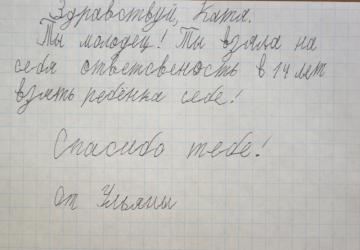 Здравствуй, Катя.
Ты молодец! Ты взяла на
себя ответсвеность в 14 лет
взять ребёнка себе!
Спасибо тебе!
от Ульяны